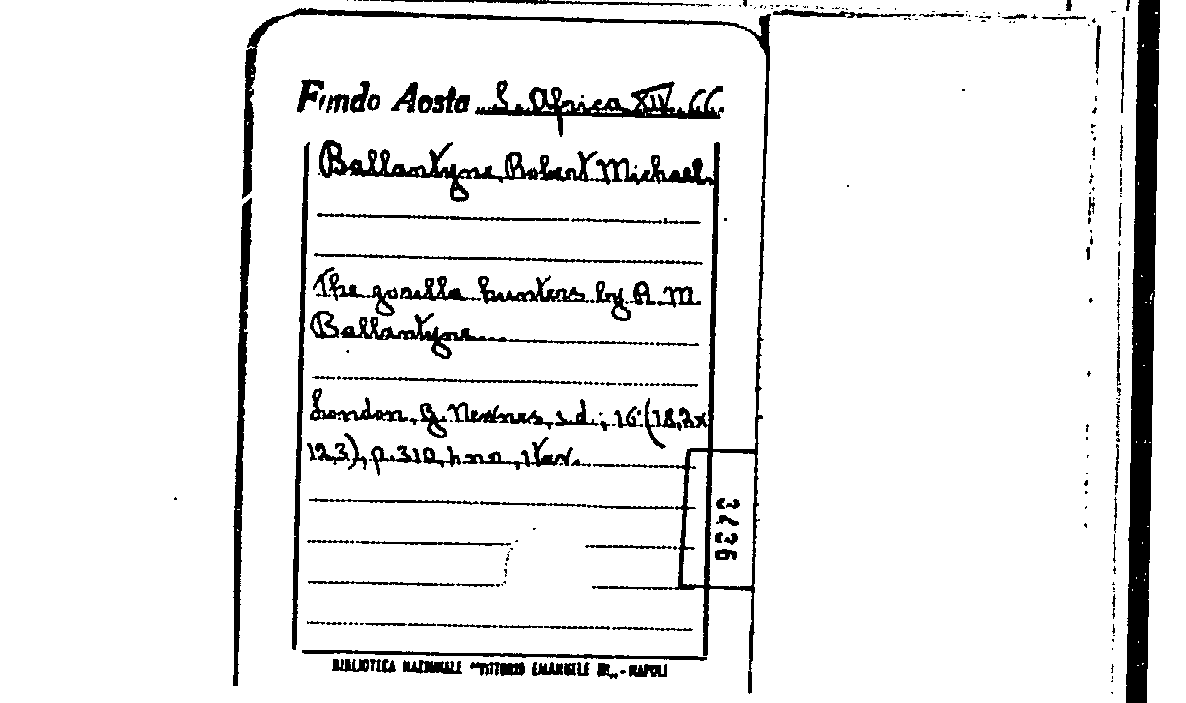 Fondo Aosta S. Africa XIV. CC.
Ballantyne Robert Michael.
The gorilla hunters by R. M
Ballantyne...
London, G. Newnes, s.d.; 16° (18,2x
12,3), p. 310, 1 tav.
3436
BIBLIOTECA NAZIONALE "VITTORIO EMANUELE III„ - NAPOLI